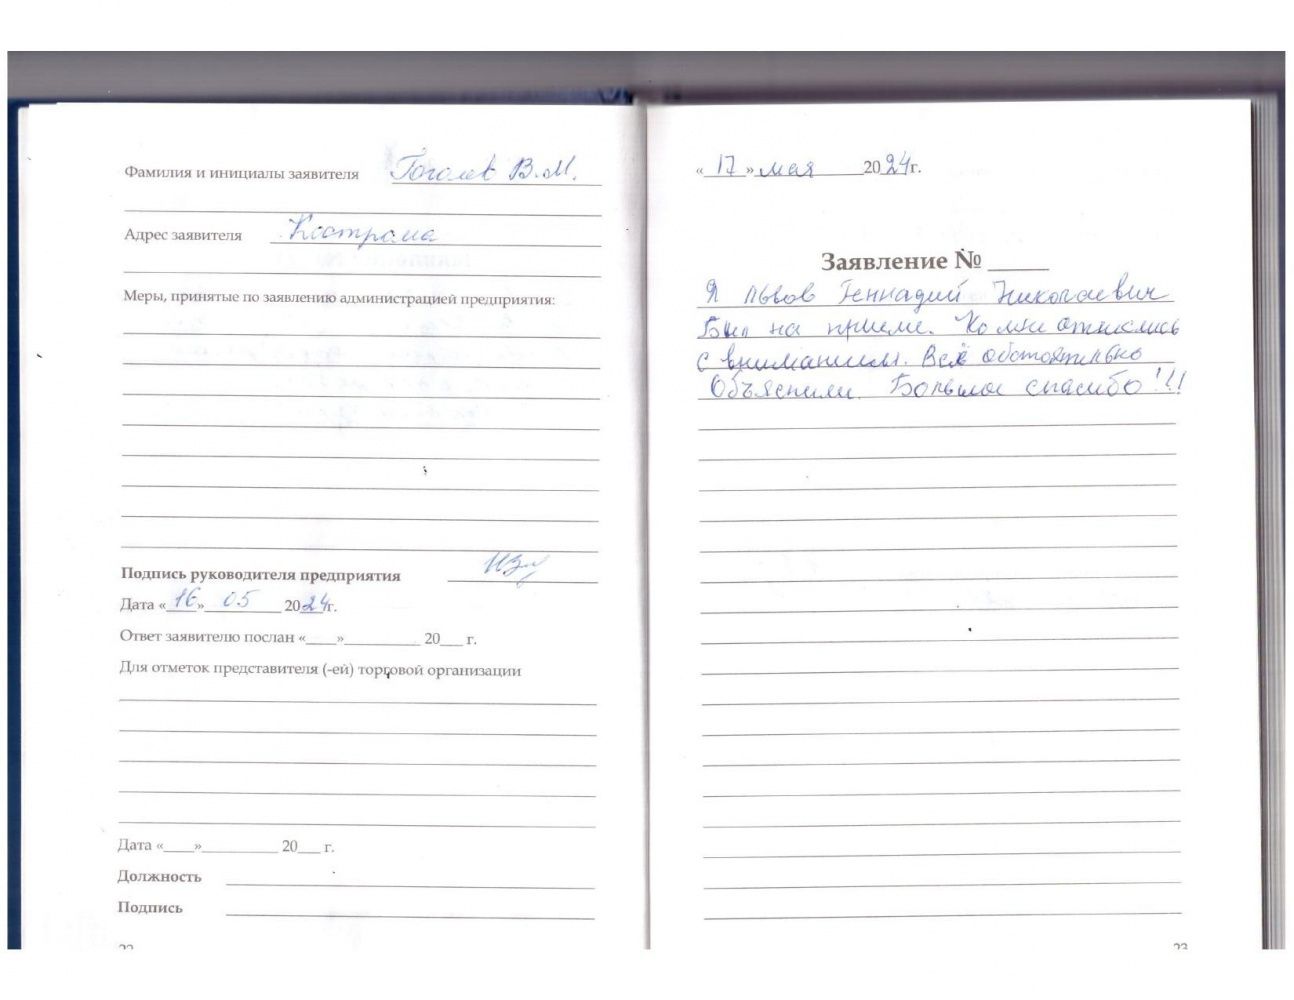 Фамилия и инициалы заявителя Гоголев В.М.
Адрес заявителя Кострома
Меры, принятые по заявлению администрацией предприятия:
Подпись руководителя предприятия
Дата «16» 05 2024г.
Ответ заявителю послан «____»__________ 20___ г.
Для отметок представителя (-ей) торговой организации
Дата «____»__________ 20___ г.
Должность
Подпись
22
«17» мая 2024г.
Заявление № _____
Я Львов Геннадий Николаевич
Был на приеме. Ко мне отнеслись
с вниманием. Всё обстоятельно
Объяснили. Большое спасибо!!!
23